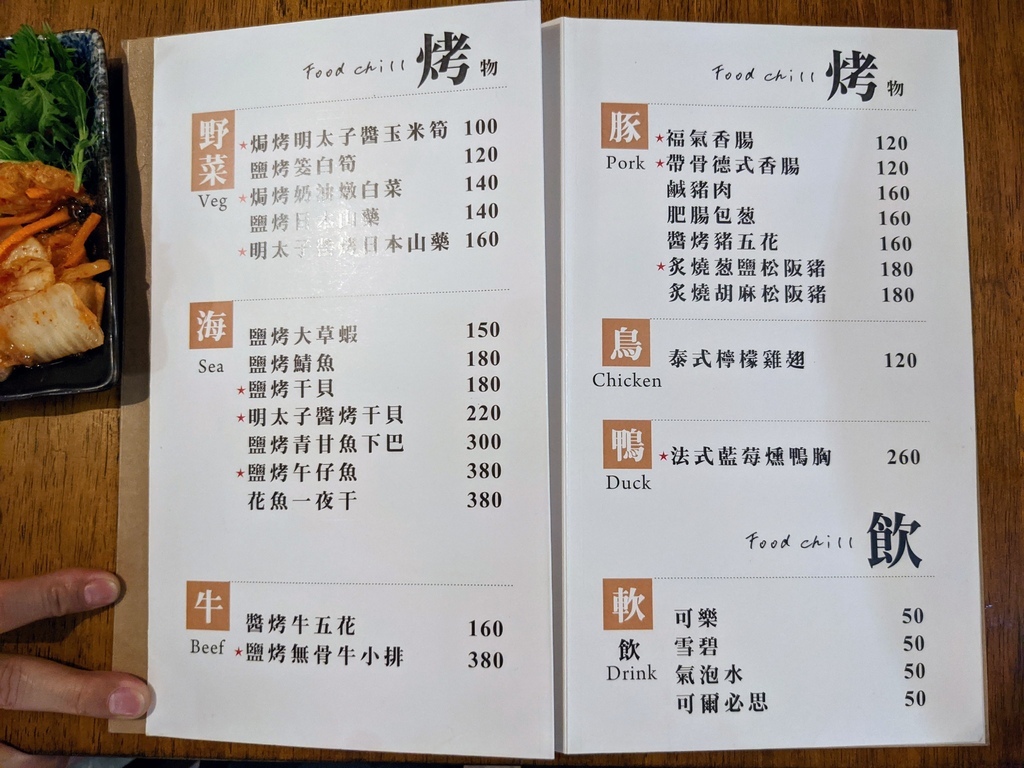 Food chill 烤物
野菜
Veg
★焗烤明太子醬玉米筍 100
鹽烤筊白筍 120
★焗烤奶油燉白菜 140
鹽烤日本山藥 140
★明太子醬烤日本山藥 160
海
Sea
鹽烤大草蝦 150
鹽烤鯖魚 180
★鹽烤干貝 180
★明太子醬烤干貝 220
鹽烤青甘魚下巴 300
★鹽烤午仔魚 380
花魚一夜干 380
牛
Beef
醬烤牛五花 160
★鹽烤無骨牛小排 380
Food chill 烤物
豚
Pork
★福氣香腸 120
★帶骨德式香腸 120
鹹豬肉 160
肥腸包葱 160
醬烤豬五花 160
★炙燒葱鹽松阪豬 180
炙燒胡麻松阪豬 180
鳥
Chicken
泰式檸檬雞翅 120
鴨
Duck
★法式藍莓燻鴨胸 260
Food chill 飲
軟
飲
Drink
可樂 50
雪碧 50
氣泡水 50
可爾必思 50